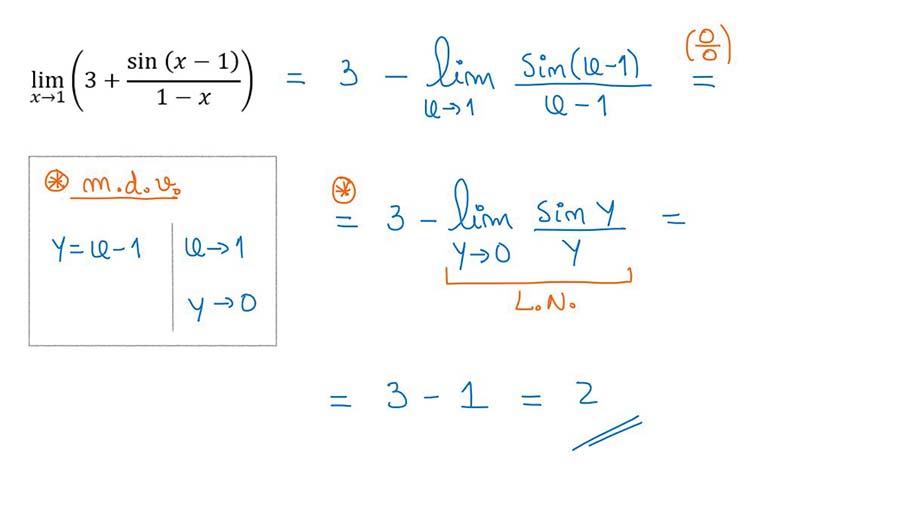 lim x→1 (3 + sin (x − 1) / 1 − x) = 3 − lim x→1 sin(x−1) / x−1 (0/0) =
* m.d.v.
y = x−1 | x→1
y→0
* = 3 − lim y→0 sin y / y =
L.N.
= 3 − 1 = 2